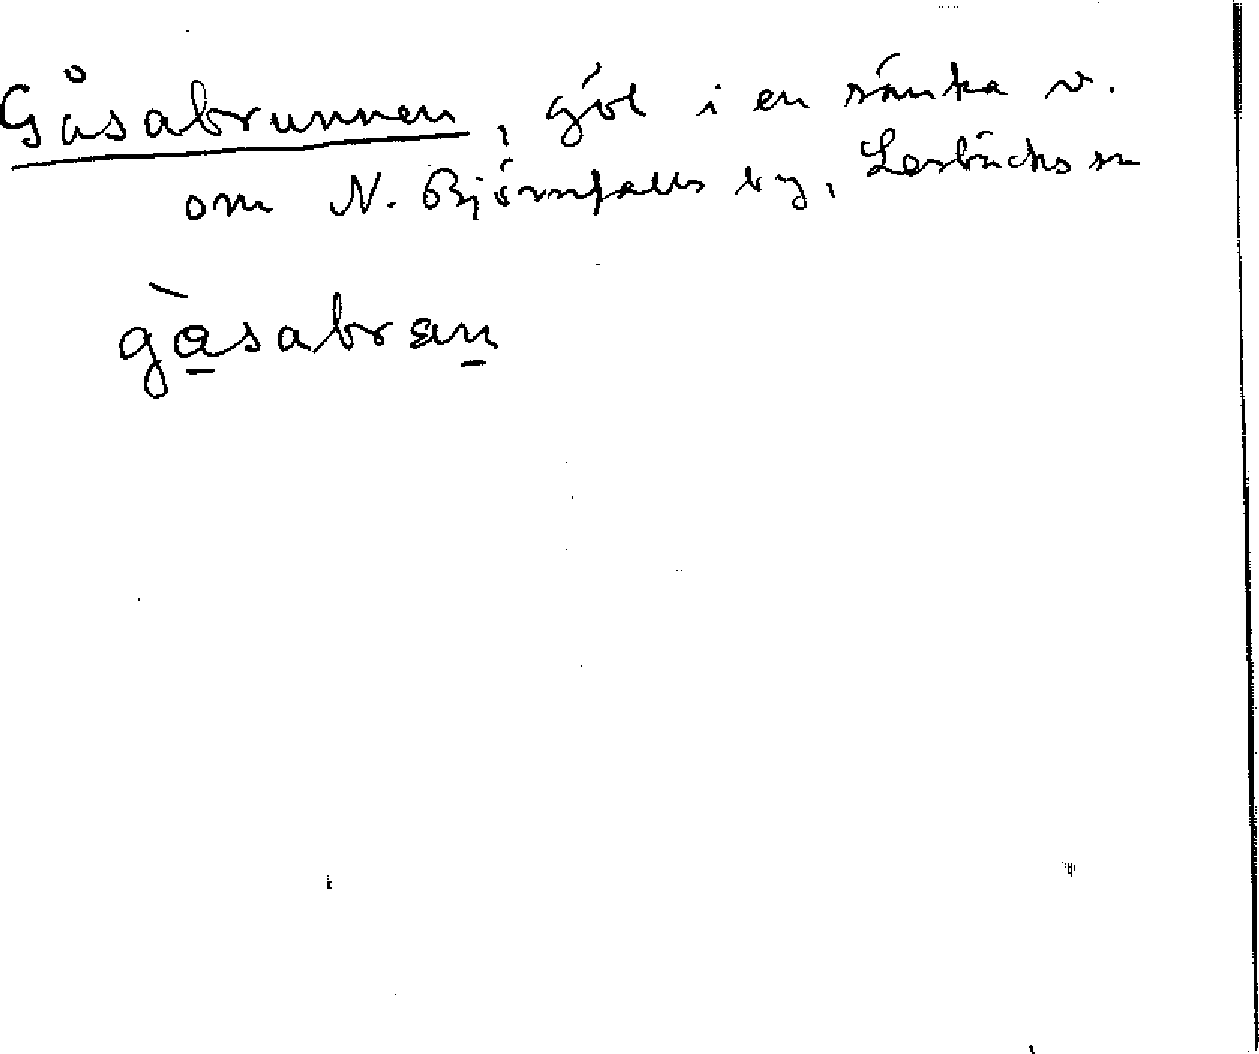 Gåsabrunnen, göl i en sänka v.
om N. Björnfalls by, Lerbäcks sn
gàsabran